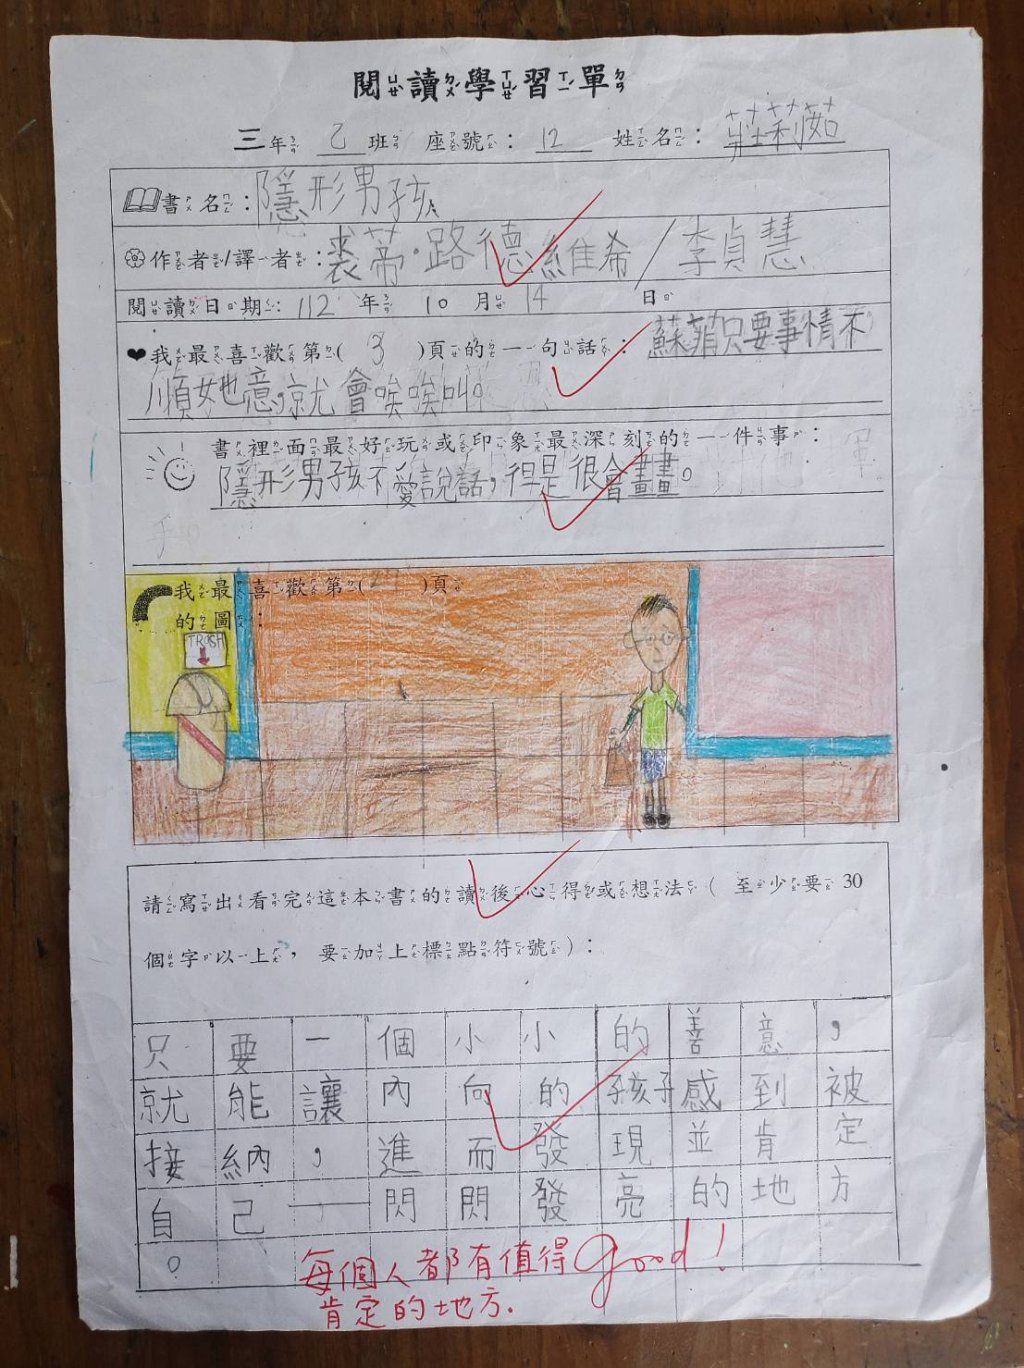 閱讀學習單
三年 乙 班 座號： 12 姓名： 莊莉茹
書名： 隱形男孩
作者/譯者： 裘蒂·路德維希/李貞慧
閱讀日期： 112 年 10 月 14 日
我最喜歡第( 3 )頁的一句話： 蘇菲只要事情不
順她意，就會唉唉叫。
書裡面最好玩或印象最深刻的一件事：
隱形男孩不愛說話，但是很會畫畫。
我最喜歡第( )頁
的圖：
TRASH
請寫出看完這本書的讀後心得或想法( 至少要 30
個字以上， 要加上標點符號)：
只要一個小小的善意，
就能讓內向的孩子感到被
接納，進而發現並肯定
自己一閃閃發亮的地方
。
每個人都有值得 good!
肯定的地方.